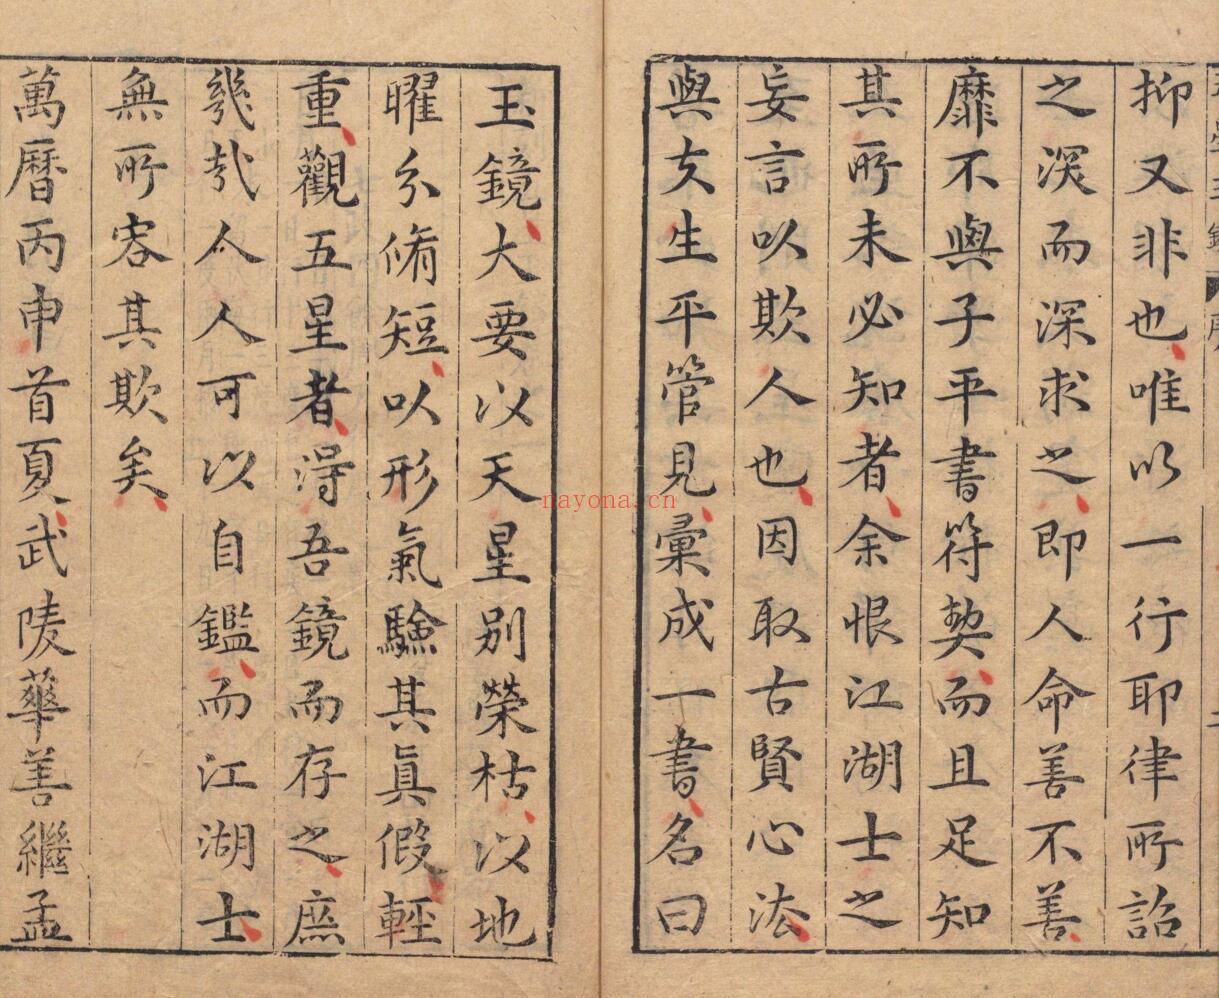 抑又非也唯以一行耶律所詒
之溪而深求之即人命善不善
靡不與子平書符契而且足知
其所未必知者余恨江湖士之
妄言以欺人也因取古賢心法
與夫生平管見彙成一書名曰
玉鏡大要以天星別榮枯以地
曜分脩短以形氣驗其真假輕
重觀五星者淂吾鏡而存之庶
幾哉人人可以自鑑而江湖士
無所容其欺矣
萬曆丙申首夏武陵華善繼孟
nayona.cn